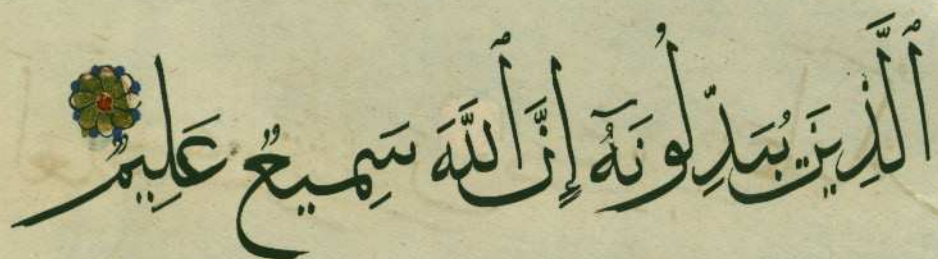 ٱلَّذِينَ يُبَدِّلُونَهُۥٓ إِنَّ ٱللَّهَ سَمِيعٌ عَلِيمٌ